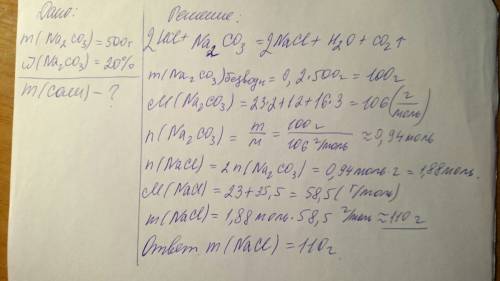 Дано:
m(Na2CO3)=500г
ω(Na2CO3)=20%
m(соли)-?
Решение:
2HCl+Na2CO3=2NaCl+H2O+CO2↑
m(Na2CO3)безводн=0,2·500г=100г
M(Na2CO3)=23·2+12+16·3=106(г/моль)
n(Na2CO3)=m/M=100г/106г/моль≈0,94моль
n(NaCl)=2n(Na2CO3)=0,94моль·2=1,88моль.
M(NaCl)=23+35,5=58,5(г/моль)
m(NaCl)=1,88моль·58,5г/моль≈110г
Ответ: m(NaCl)=110г.